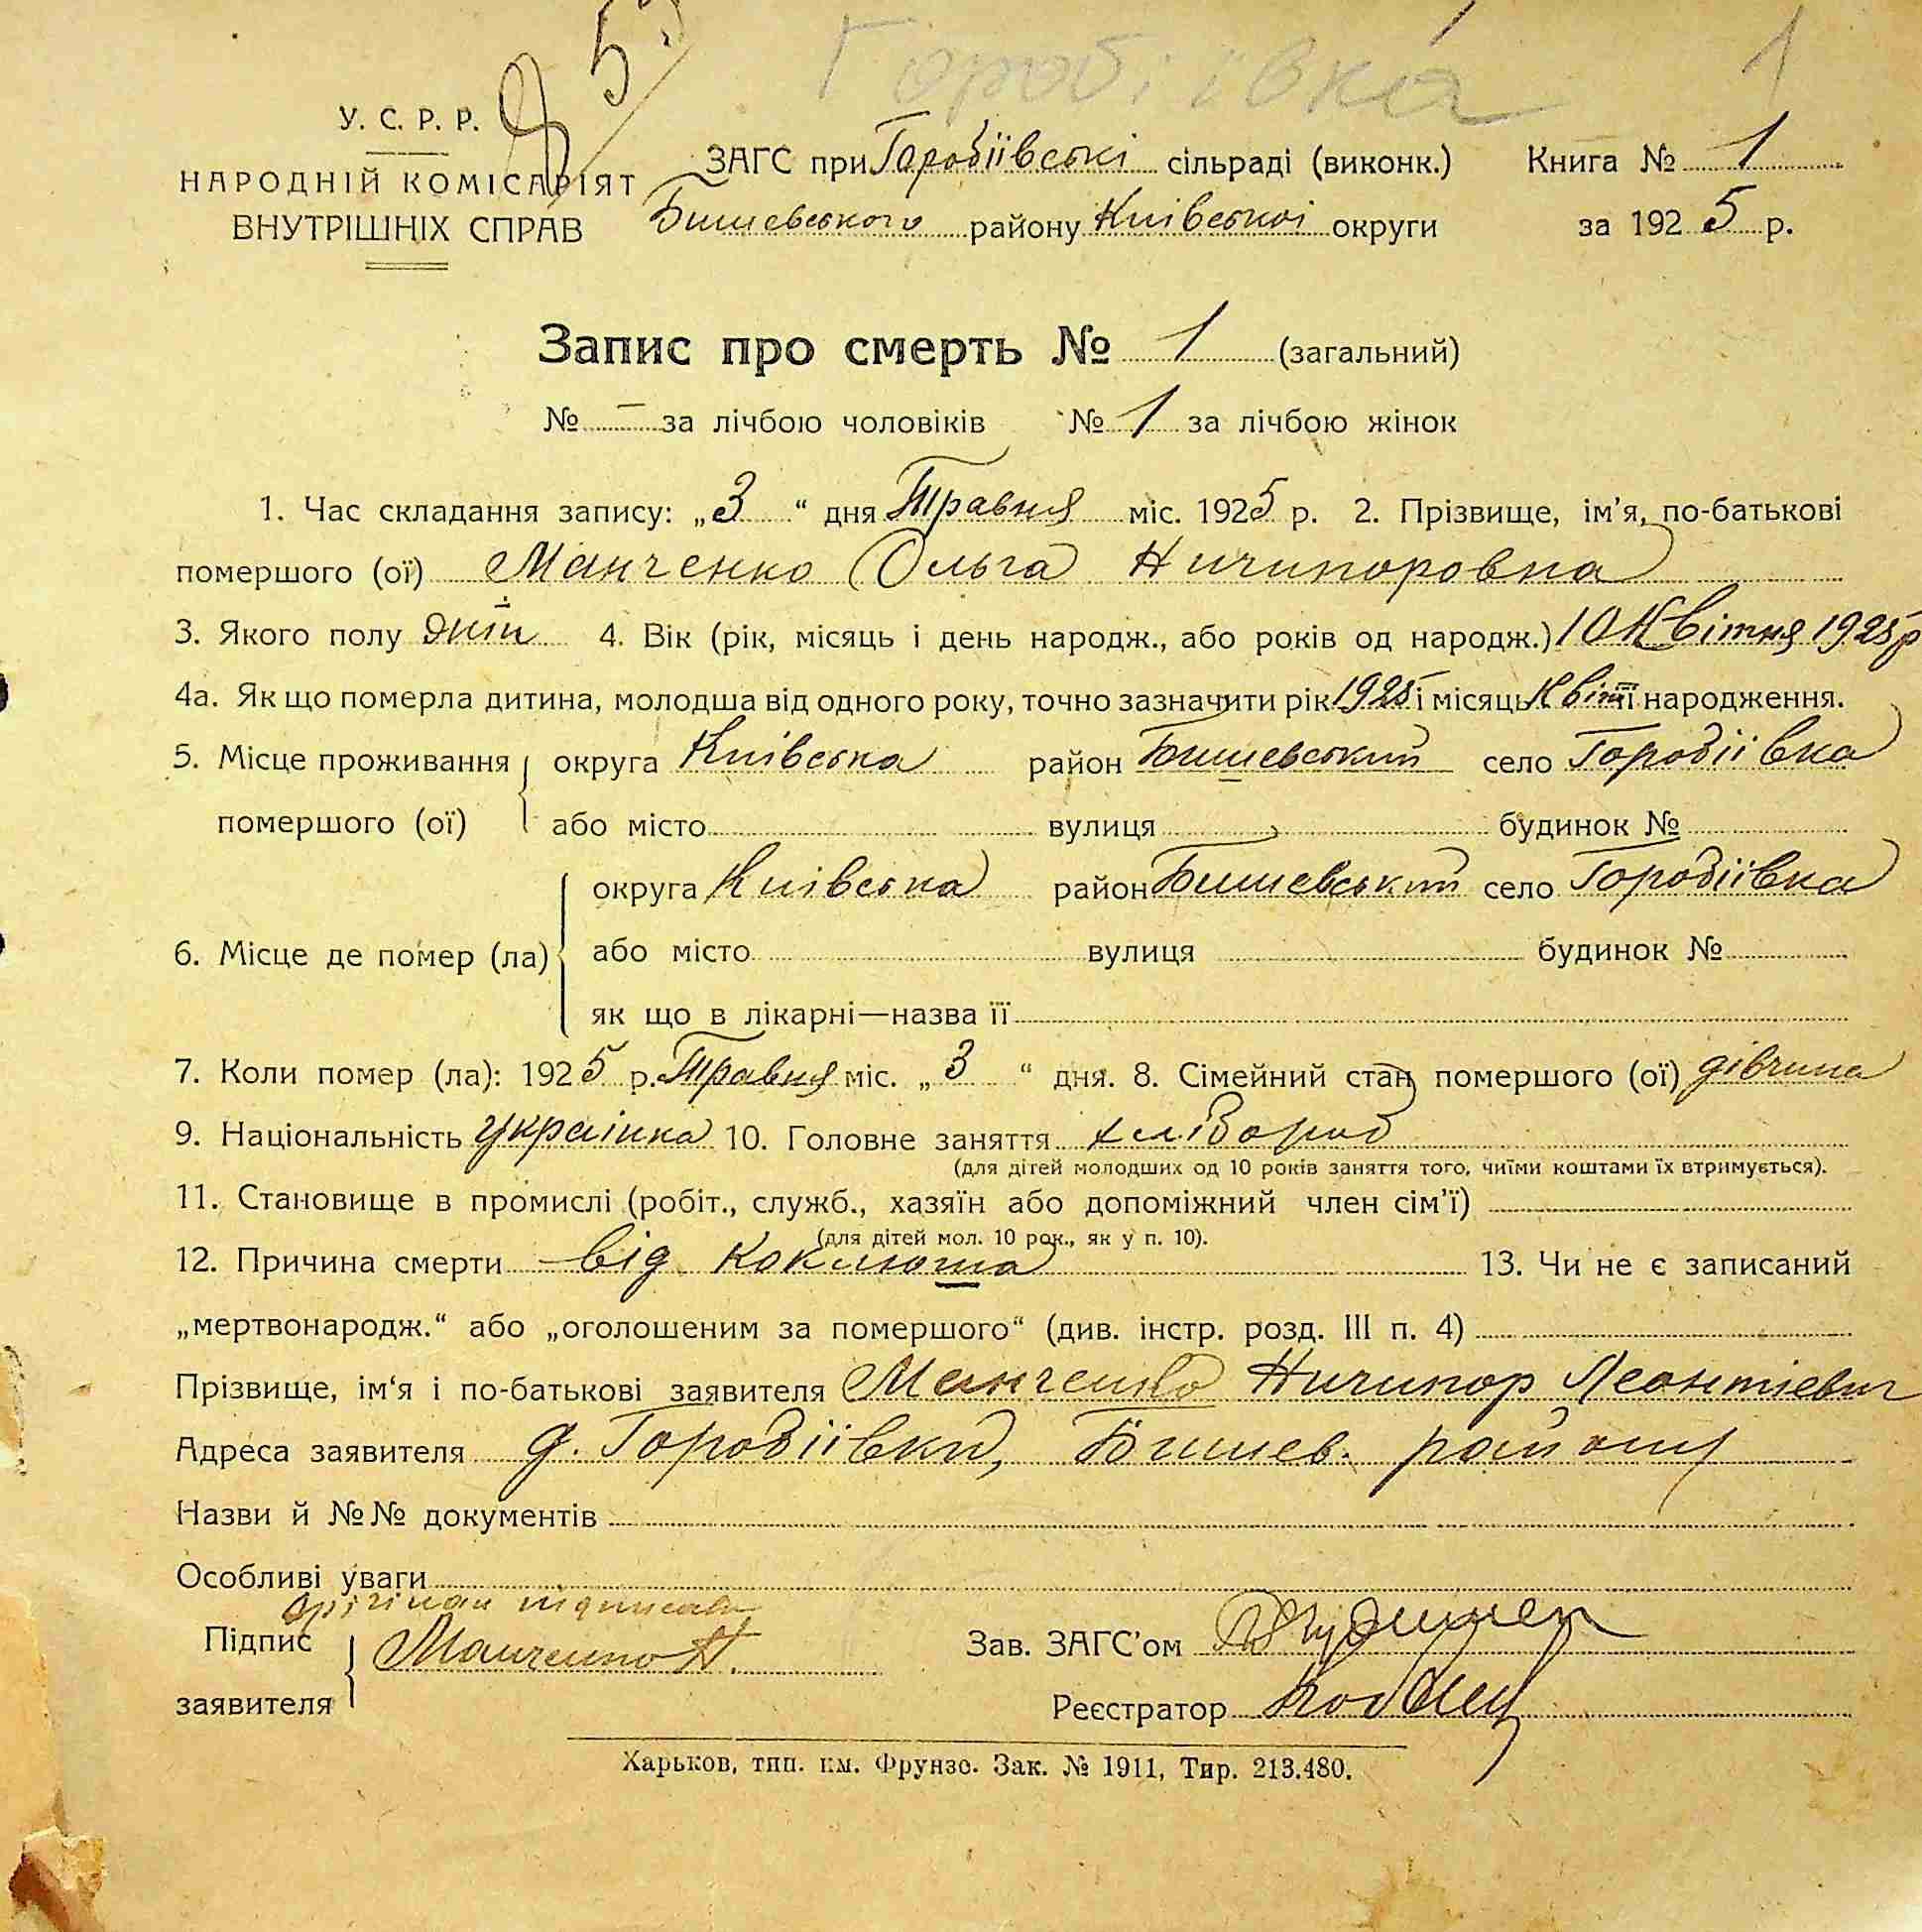 Горобіївка 1
У. С. Р. Р.
НАРОДНІЙ КОМІСАРІЯТ
ВНУТРІШНІХ СПРАВ
ЗАГС при Горобіївські сільраді (виконк.) Книга № 1
Бишевського району Київської округи за 1925 р.
Запис про смерть № 1 (загальний)
№ – за лічбою чоловіків № 1 за лічбою жінок
1. Час складання запису: „3“ дня Травня міс. 1925 р. 2. Прізвище, ім'я, по-батькові
помершого (ої) Манченко Ольга Ничипоровна
3. Якого полу 4. Вік (рік, місяць і день народж., або років од народж.) 10 Квітня 1925 р
4а. Як що померла дитина, молодша від одного року, точно зазначити рік 1925 і місяць її народження.
5. Місце проживання округа Київська район Бишевський село Горобіївка
помершого (ої) або місто вулиця будинок №
округа Київська район Бишевський село Горобіївка
6. Місце де помер (ла) або місто вулиця будинок №
як що в лікарні—назва її
7. Коли помер (ла): 1925 р. Травня міс. „3“ дня. 8. Сімейний стан помершого (ої) дівчина
9. Національність українка 10. Головне заняття хлібороб
(для дітей молодших од 10 років заняття того, чиїми коштами їх втримується).
11. Становище в промислі (робіт., служб., хазяїн або допоміжний член сім'ї)
(для дітей мол. 10 рок., як у п. 10).
12. Причина смерти від коклюша 13. Чи не є записаний
„мертвонародж.“ або „оголошеним за помершого“ (див. інстр. розд. III п. 4)
Прізвище, ім'я і по-батькові заявителя Манченко Ничипор Леонтієвич
Адреса заявителя д. Горобіївка, Бишев. району
Назви й №№ документів
Особливі уваги
орігінал підписав
Підпис Манченко Н. Зав. ЗАГС'ом
заявителя Реєстратор
Харьков, тип. им. Фрунзе. Зак. № 1911, Тир. 213.480.